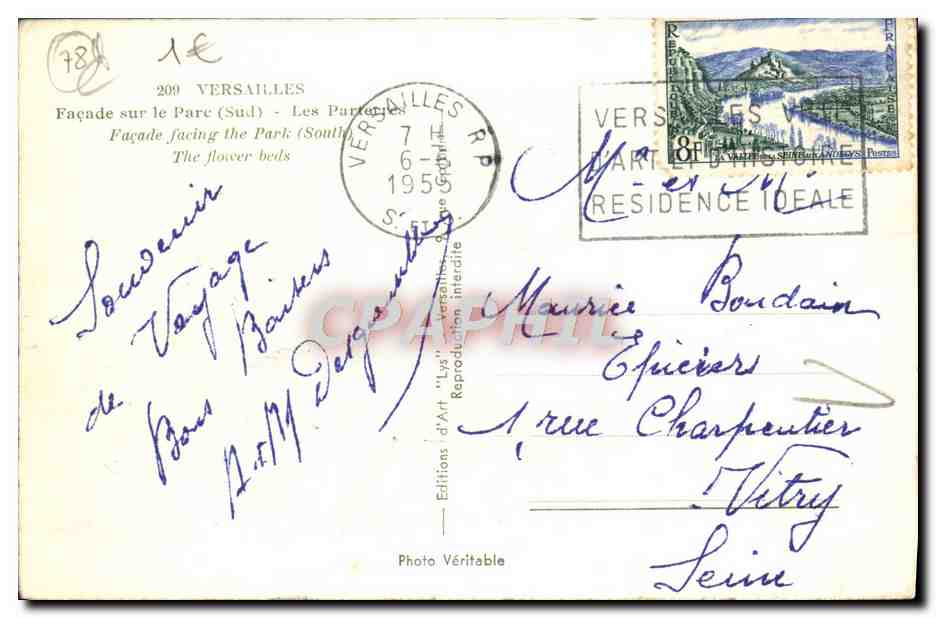 78
1€
209 VERSAILLES
Façade sur le Parc (Sud) - Les Parterres
Façade facing the Park (South)
The flower beds
VERSAILLES RP
7 H
6-
1955
S. ET O.
VERSAILLES VILLE
D'ART ET D'HISTOIRE
RESIDENCE IDEALE
REPUBLIQUE FRANCAISE
8F LA VALLEE DE LA SEINE AUX ANDELYS POSTES
Souvenir
de Voyage
Bons Baisers
A. et M
Mr et Me
Maurice Boudain
Epiciers
1 rue Charpentier
Vitry
Seine
Editions d'Art "Lys" Versailles, 9, rue
Reproduction interdite
Photo Véritable
CPAPHIL